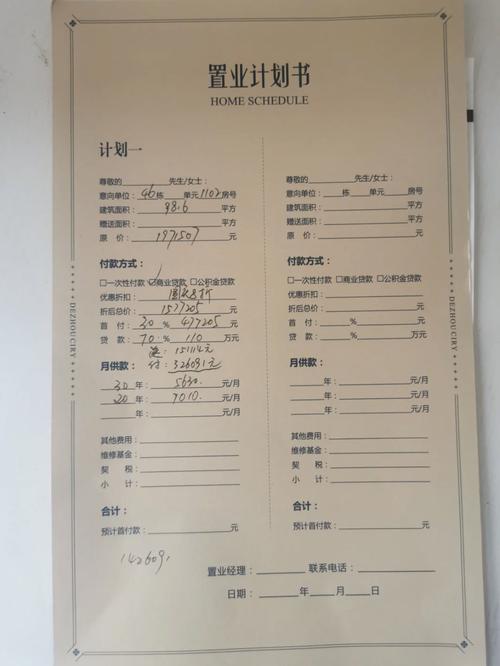 置业计划书
HOME SCHEDULE
计划一
尊敬的________先生/女士：
意向单位：46栋____单元1102房号
建筑面积：98.6平方
赠送面积：________平方
原 价：1971507元
付款方式：
□一次性付款 ☑商业贷款 □公积金贷款
优惠折扣：8折
折后总价：1577205元
首 付：30% 477205元
贷 款：70% 110万元
151114元
付：326091元
月供款：
30年：5630.元/月
20年：7010.元/月
____年：________元/月
其他费用：
维修基金：
契 税：
小 计：
合计：
预计首付款：________元
142609
尊敬的________先生/女士：
意向单位：____栋____单元____房号
建筑面积：________平方
赠送面积：________平方
原 价：________元
付款方式：
□一次性付款 □商业贷款 □公积金贷款
优惠折扣：
折后总价：________元
首 付：____%________元
贷 款：____%________万元
月供款：
____年：________元/月
____年：________元/月
____年：________元/月
其他费用：
维修基金：
契 税：
小 计：
合计：
预计首付款：________元
置业经理：________联系电话：________
日期：____年____月____日
DEZHOUCIRY
DEZHOUCIRY